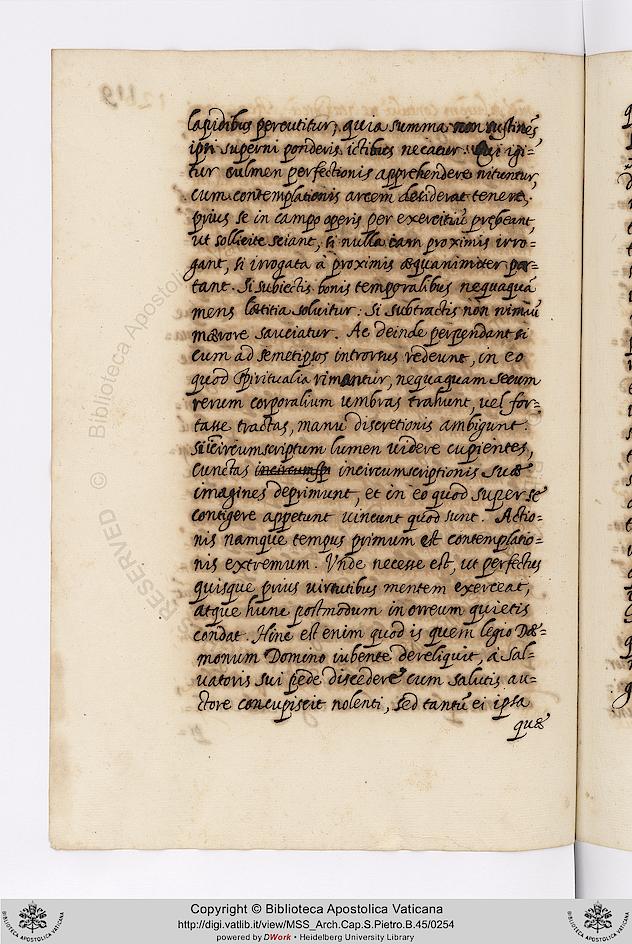 lapidibus percutitur, quia summa non sustinēs
ipsi superni ponderis ictibus necatur. Qui igi=
tur culmen perfectionis apprehendere nituntur,
cum contemplationis arcem desiderat tenere,
prius se in campo operis per exercitiū prębeant,
ut sollicite sciant, si nulla iam proximis irro=
gant, si irrogata a proximis æquanimiter por=
tant. Si subiectis bonis temporalibus nequaquā
mens lætitia soluitur: si subtractis non nimiū
mærore sauciatur. Ac deinde perpendant si
cum ad semetipsos introrsus redeunt, in eo
quod spiritualia rimantur, nequaquam secum
rerum corporalium umbras trahunt, uel for=
tasse tractas, manu discretionis ambigunt.
Si incircumscriptum lumen uidere cupientes,
cunctas incircumsp incircumscriptionis suæ
imagines deprimunt, et in eo quod super se
contigere appetunt uincunt quod sunt. Actio=
nis namque tempus primum est contemplatio=
nis extremum. Vnde necesse est, ut perfectus
quisque prius uirtutibus mentem exerceat,
atque hunc postmodum in orreum quietis
condat. Hinc est enim quod is quem legio Dæ=
monum Domino iubente dereliquit, a sal=
uatoris sui pede discedere cum salutis au=
ctore concupiscit nolenti, sed tantū ei ipsa
quæ
© Biblioteca Apostoli
RESERVED © Biblioteca Apostolica
Copyright © Biblioteca Apostolica Vaticana
http://digi.vatlib.it/view/MSS_Arch.Cap.S.Pietro.B.45/0254
powered by DWork • Heidelberg University Library